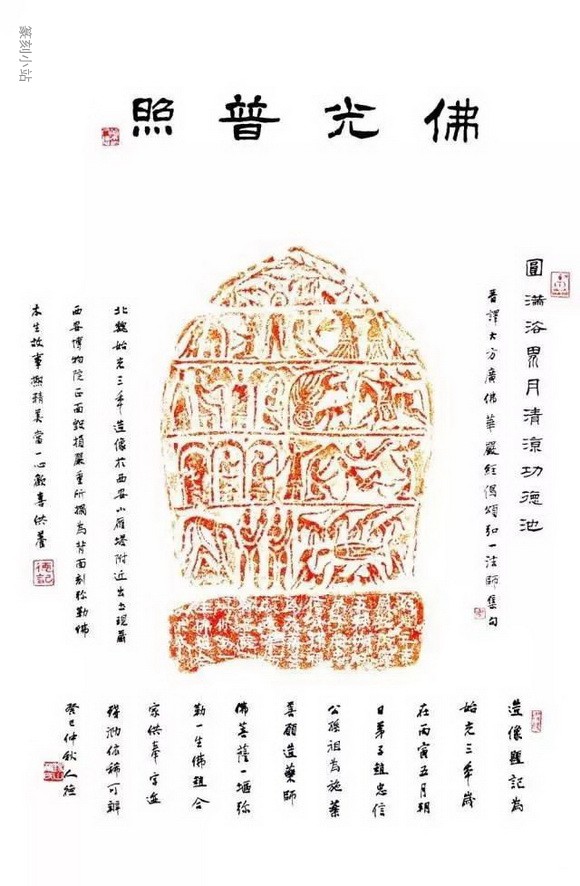 篆刻小站
佛光普照
圓滿浴界月清涼功德池
晉譯大方廣佛華嚴經偈頌弘一法師集句
北魏始光三年造像於西安小雁塔附近出土現藏
西安博物院正面毀損嚴重所搨為背面刻弥勒佛
本生故事與精美當一心歡喜供養
造像題記為
始光三年歲
在丙寅五月朔
日弟子趙忠信
公孫祖為施藥
善願造藥師
佛菩薩一堰弥
勒一生佛趙合
家供奉字迹
殘泐依稀可辨
癸巳仲秋人德